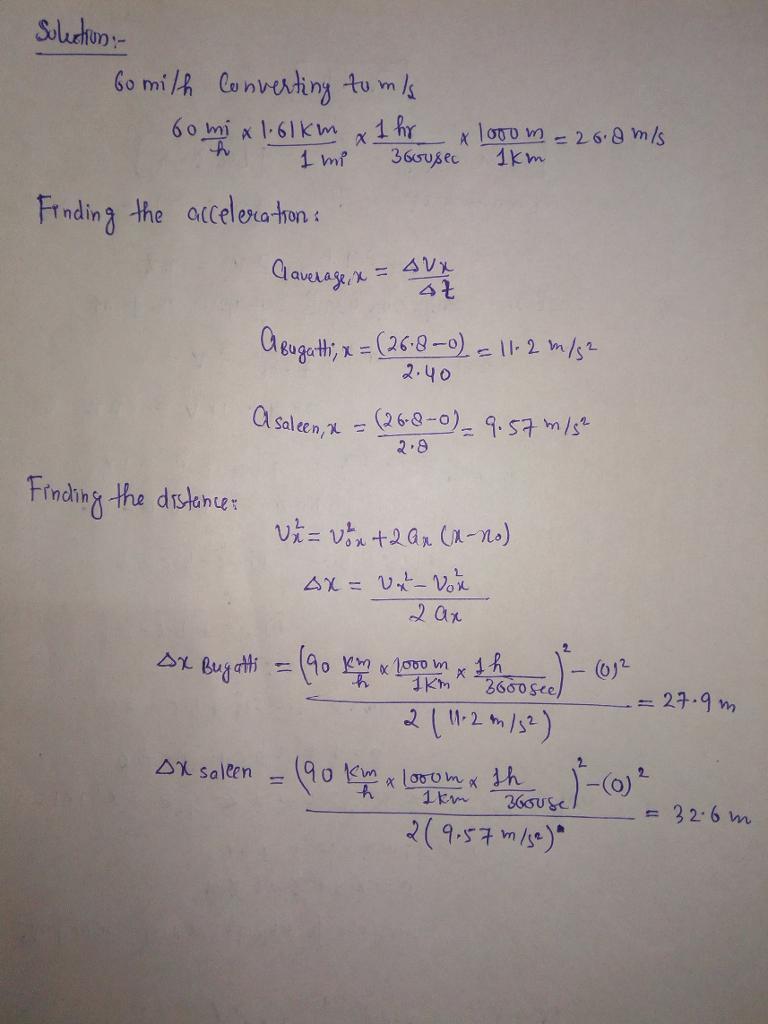 Solution:-
60 mi/h Converting to m/s
60 mi/h x 1.61 Km/1 mi x 1 hr/3600sec x 1000 m/1 Km = 26.8 m/s
Finding the acceleration:
a average, x = ΔVx/Δt
a Bugatti, x = (26.8-0)/2.40 = 11.2 m/s²
a saleen, x = (26.8-0)/2.8 = 9.57 m/s²
Finding the distance:
Vx² = V0x² + 2ax (x-x0)
Δx = Vx² - V0x²/2ax
Δx Bugatti = (90 Km/h x 1000 m/1Km x 1h/3600sec)² - (0)²/2(11.2 m/s²) = 27.9 m
Δx saleen = (90 Km/h x 1000m/1Km x 1h/3600se)² - (0)²/2(9.57 m/s²) = 32.6 m